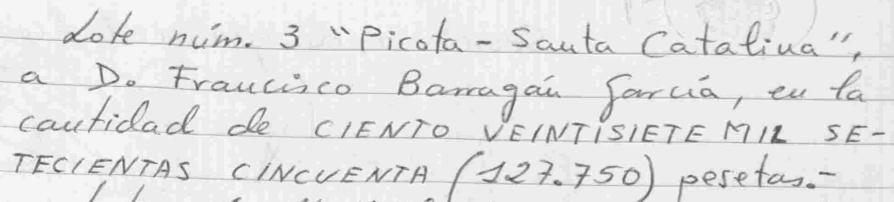 Lote núm. 3 "Picota - Santa Catalina",
a D. Francisco Barragán García, en la
cantidad de CIENTO VEINTISIETE MIL SE-
TECIENTAS CINCUENTA (127.750) pesetas.-